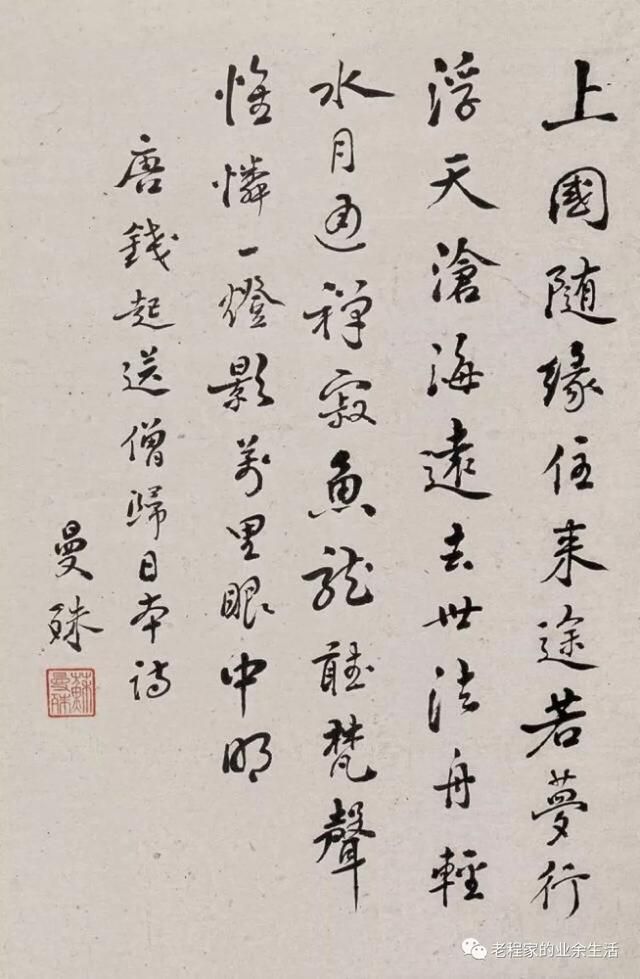 上國随緣住来途若夢行
浮天滄海遠去世法舟輕
水月通禅寂魚龍聴梵聲
惟憐一燈影萬里眼中明
唐錢起送僧歸日本詩
曼殊
蘇曼殊
老程家的业余生活